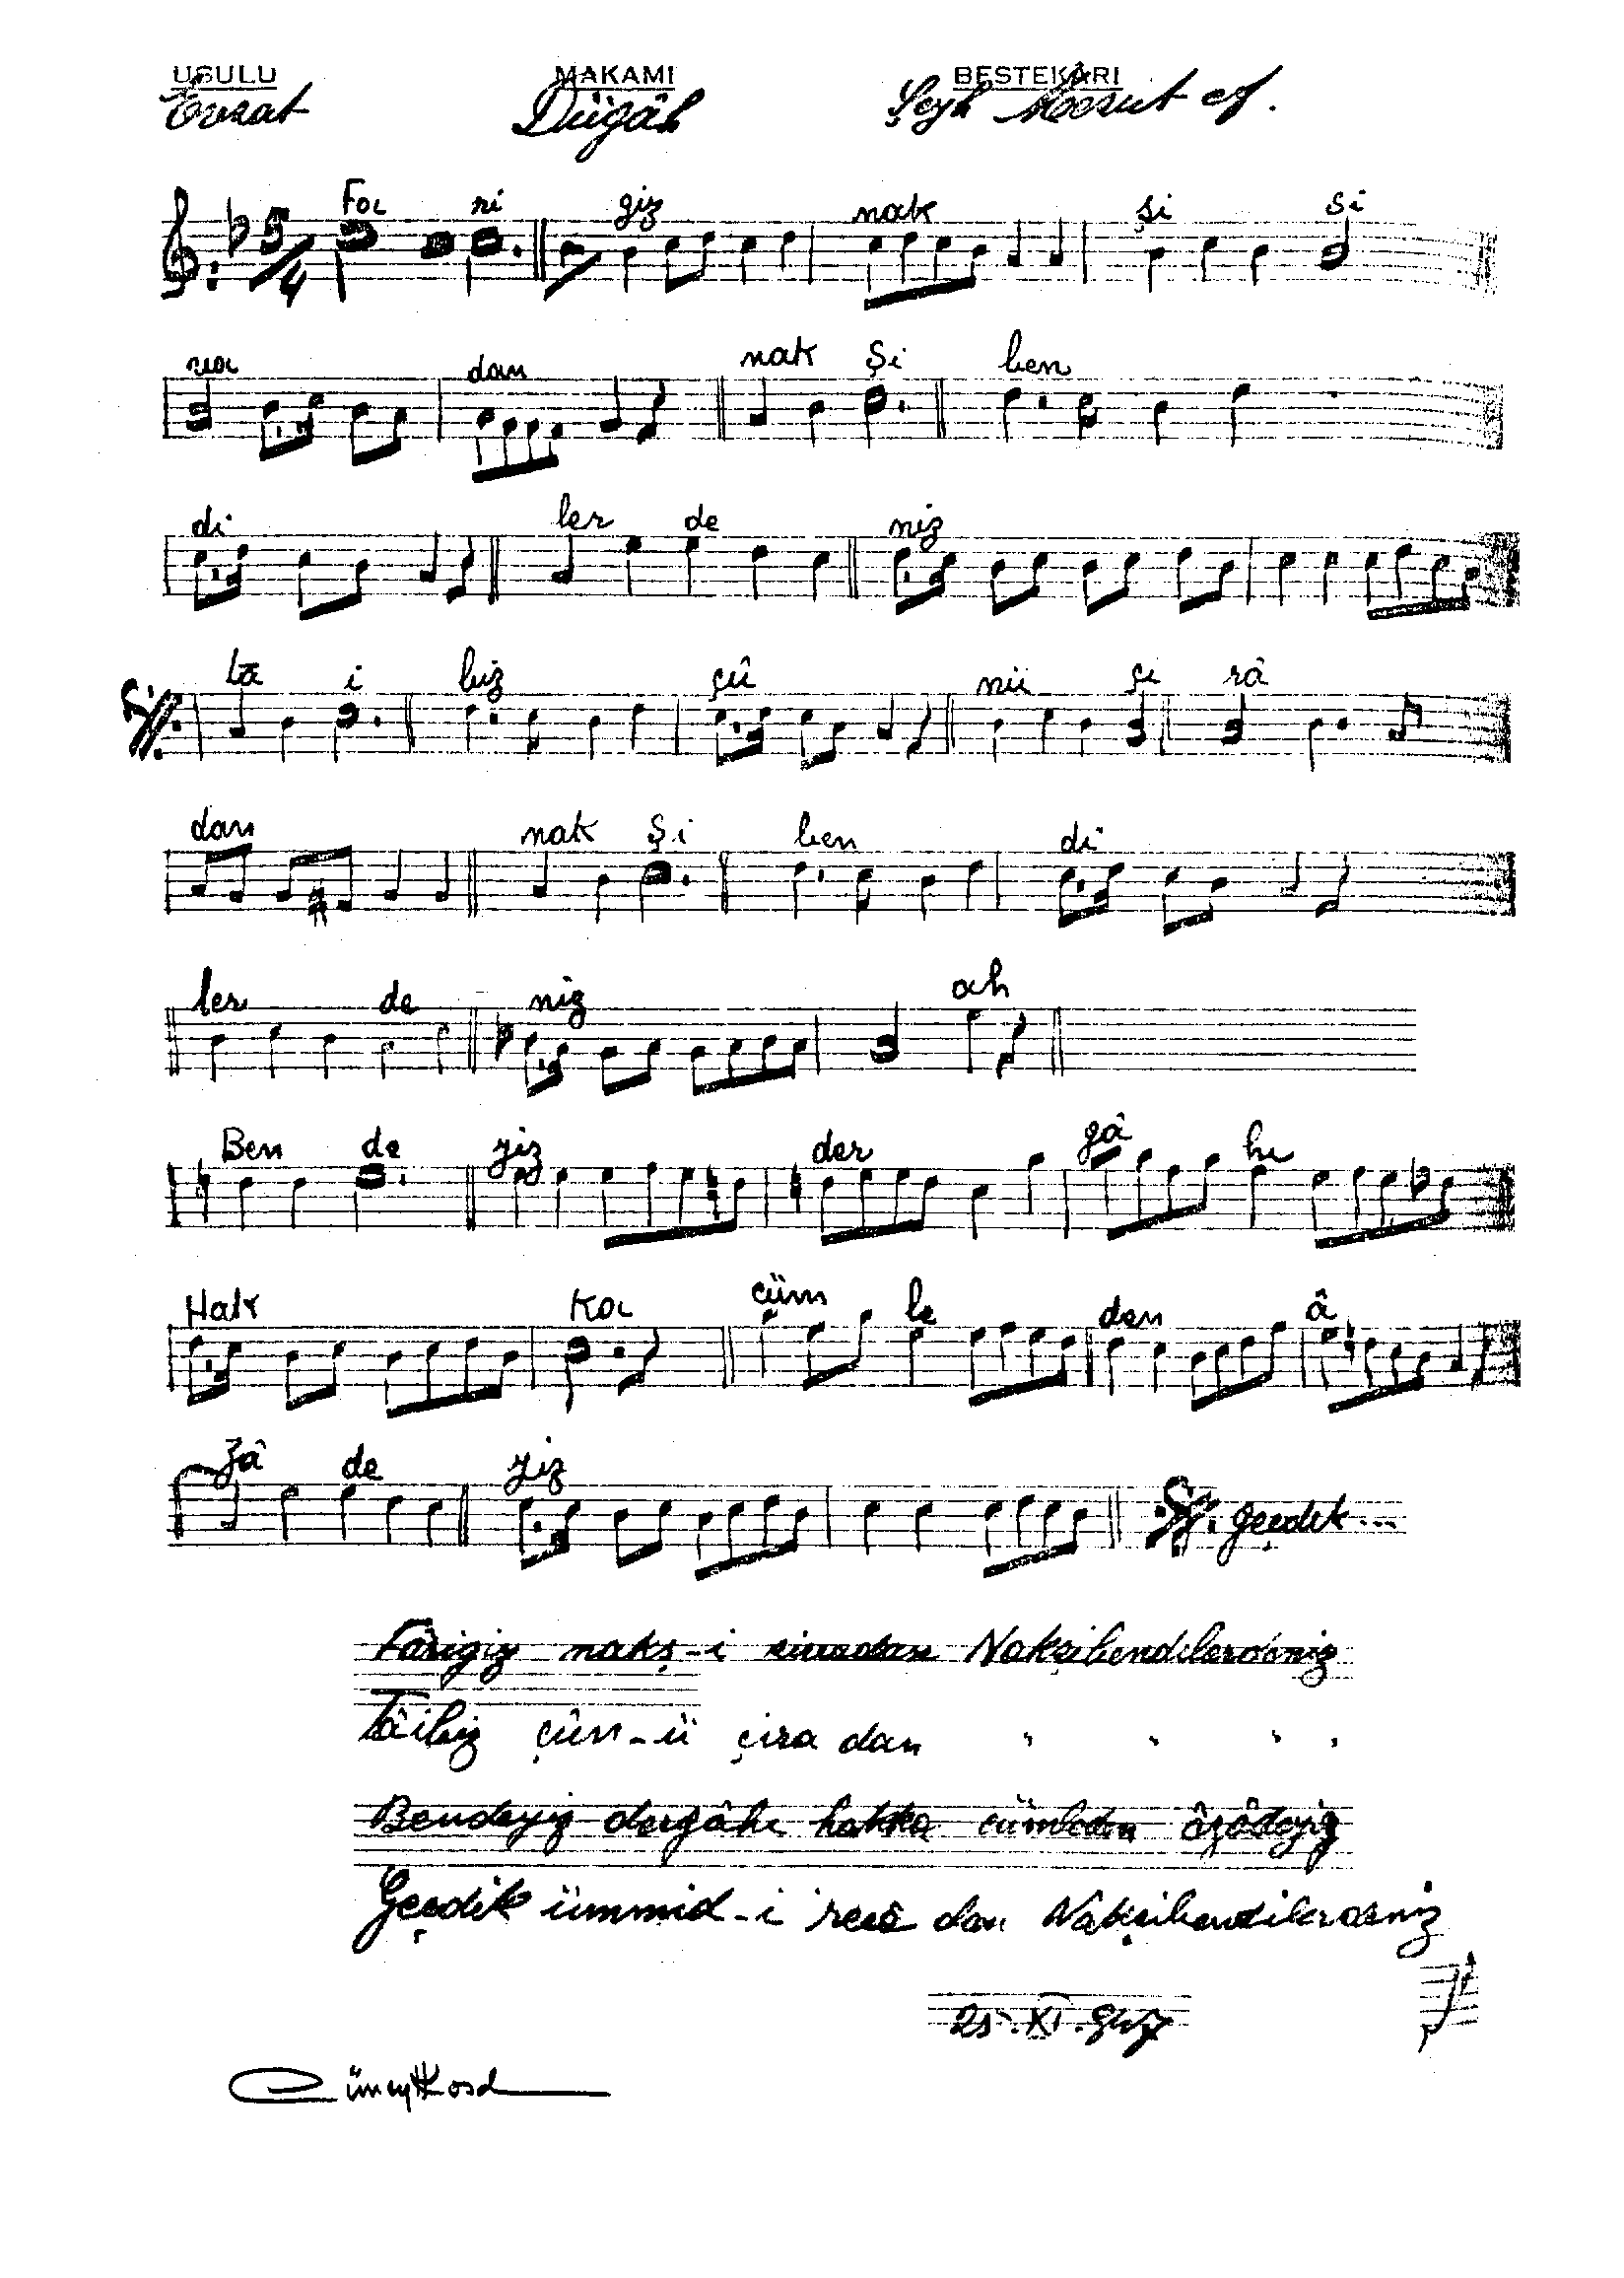 USULU MAKAMI BESTEKÂRI
Evsat Dügâh Şeyh Mesut ef.
5/4 Fa ri giz nak şi si
ma dan nak şi ben
di ler de niz
tâ i biz çû nü çi râ
dan nak şi ben di
ler de niz ah
Ben de yiz der gâ hı
Hak ka cüm le den â
zâ de yiz geçdik...
Fârigiz nakş-i sivadan Nakşibendilerdeniz
Tâibiz çûn-ü çıra dan " " " "
Bendeyiz dergâhı hakka cümleden âzâdeyiz
Geçdik ümmid-i recâ dan Nakşibendilerdeniz
25.XI.
Cüneyt Kosal